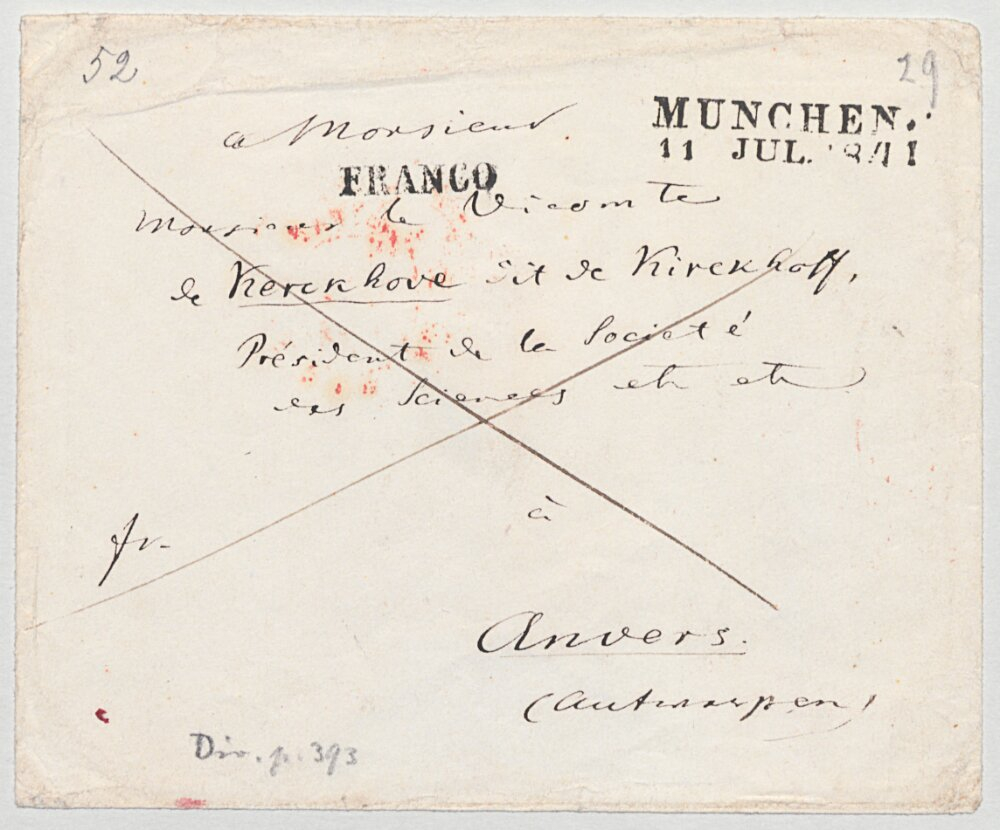 52
29
a Monsieur.
MUNCHEN.
11 JUL.
FRANCO
Monsieur le Vicomte
de Kerckhove dit de Kirckhoff,
Président de la Societé
des Sciences etc etc
à
fr.
Anvers.
(Antwerpen)
Div. p. 393